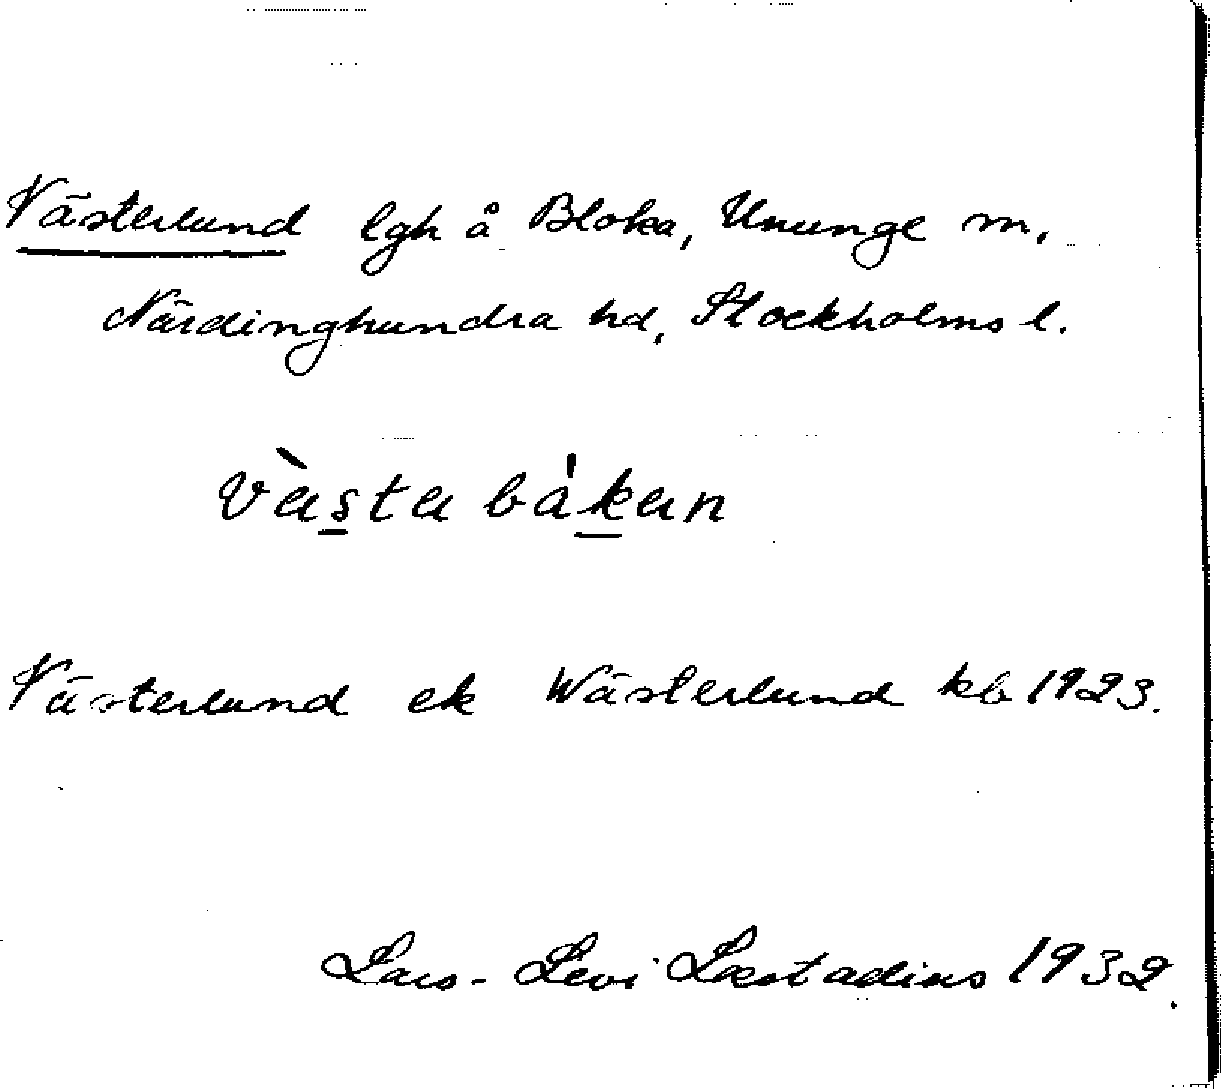 Västerlund lgh å Bloka, Ununge sn,
Närdinghundra hd, Stockholms l.
vàsta bákan
Västerlund ek Wästerlund kb 1923.
Lars-Levi Læstadius 1932.